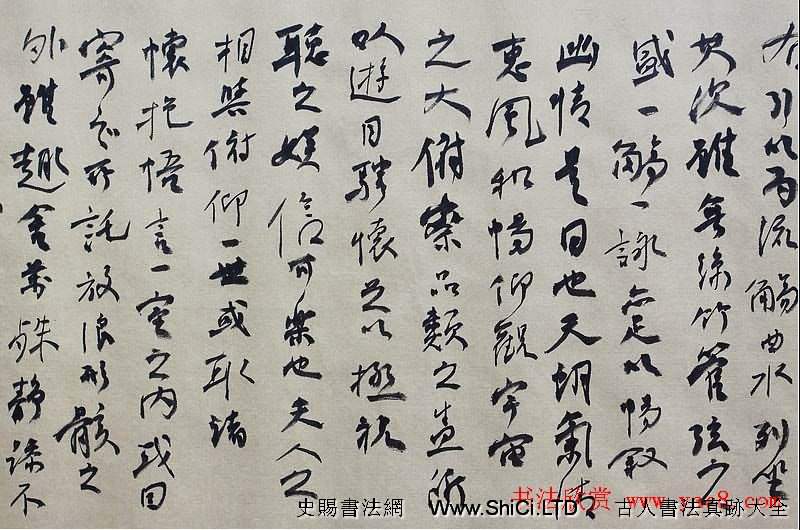 右引以為流觴曲水列坐
其次雖無絲竹管弦之
盛一觴一詠亦足以暢敘
幽情是日也天朗氣清
惠風和暢仰觀宇宙
之大俯察品類之盛所
以遊目騁懷足以極視
聽之娛信可樂也夫人之
相與俯仰一世或取諸
懷抱悟言一室之內或因
寄所託放浪形骸之
外雖趣舍萬殊靜躁不
书法欣赏
史賜書法網 Www.ShiCi.LTD、古人書法真跡大全